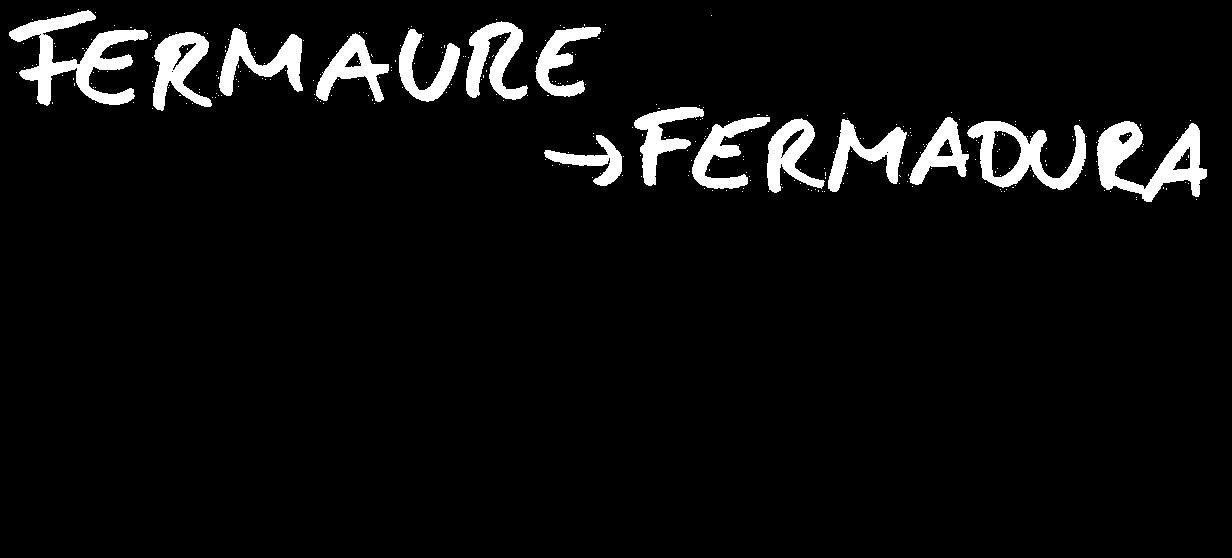 FERMAURE
→ FERMADURA